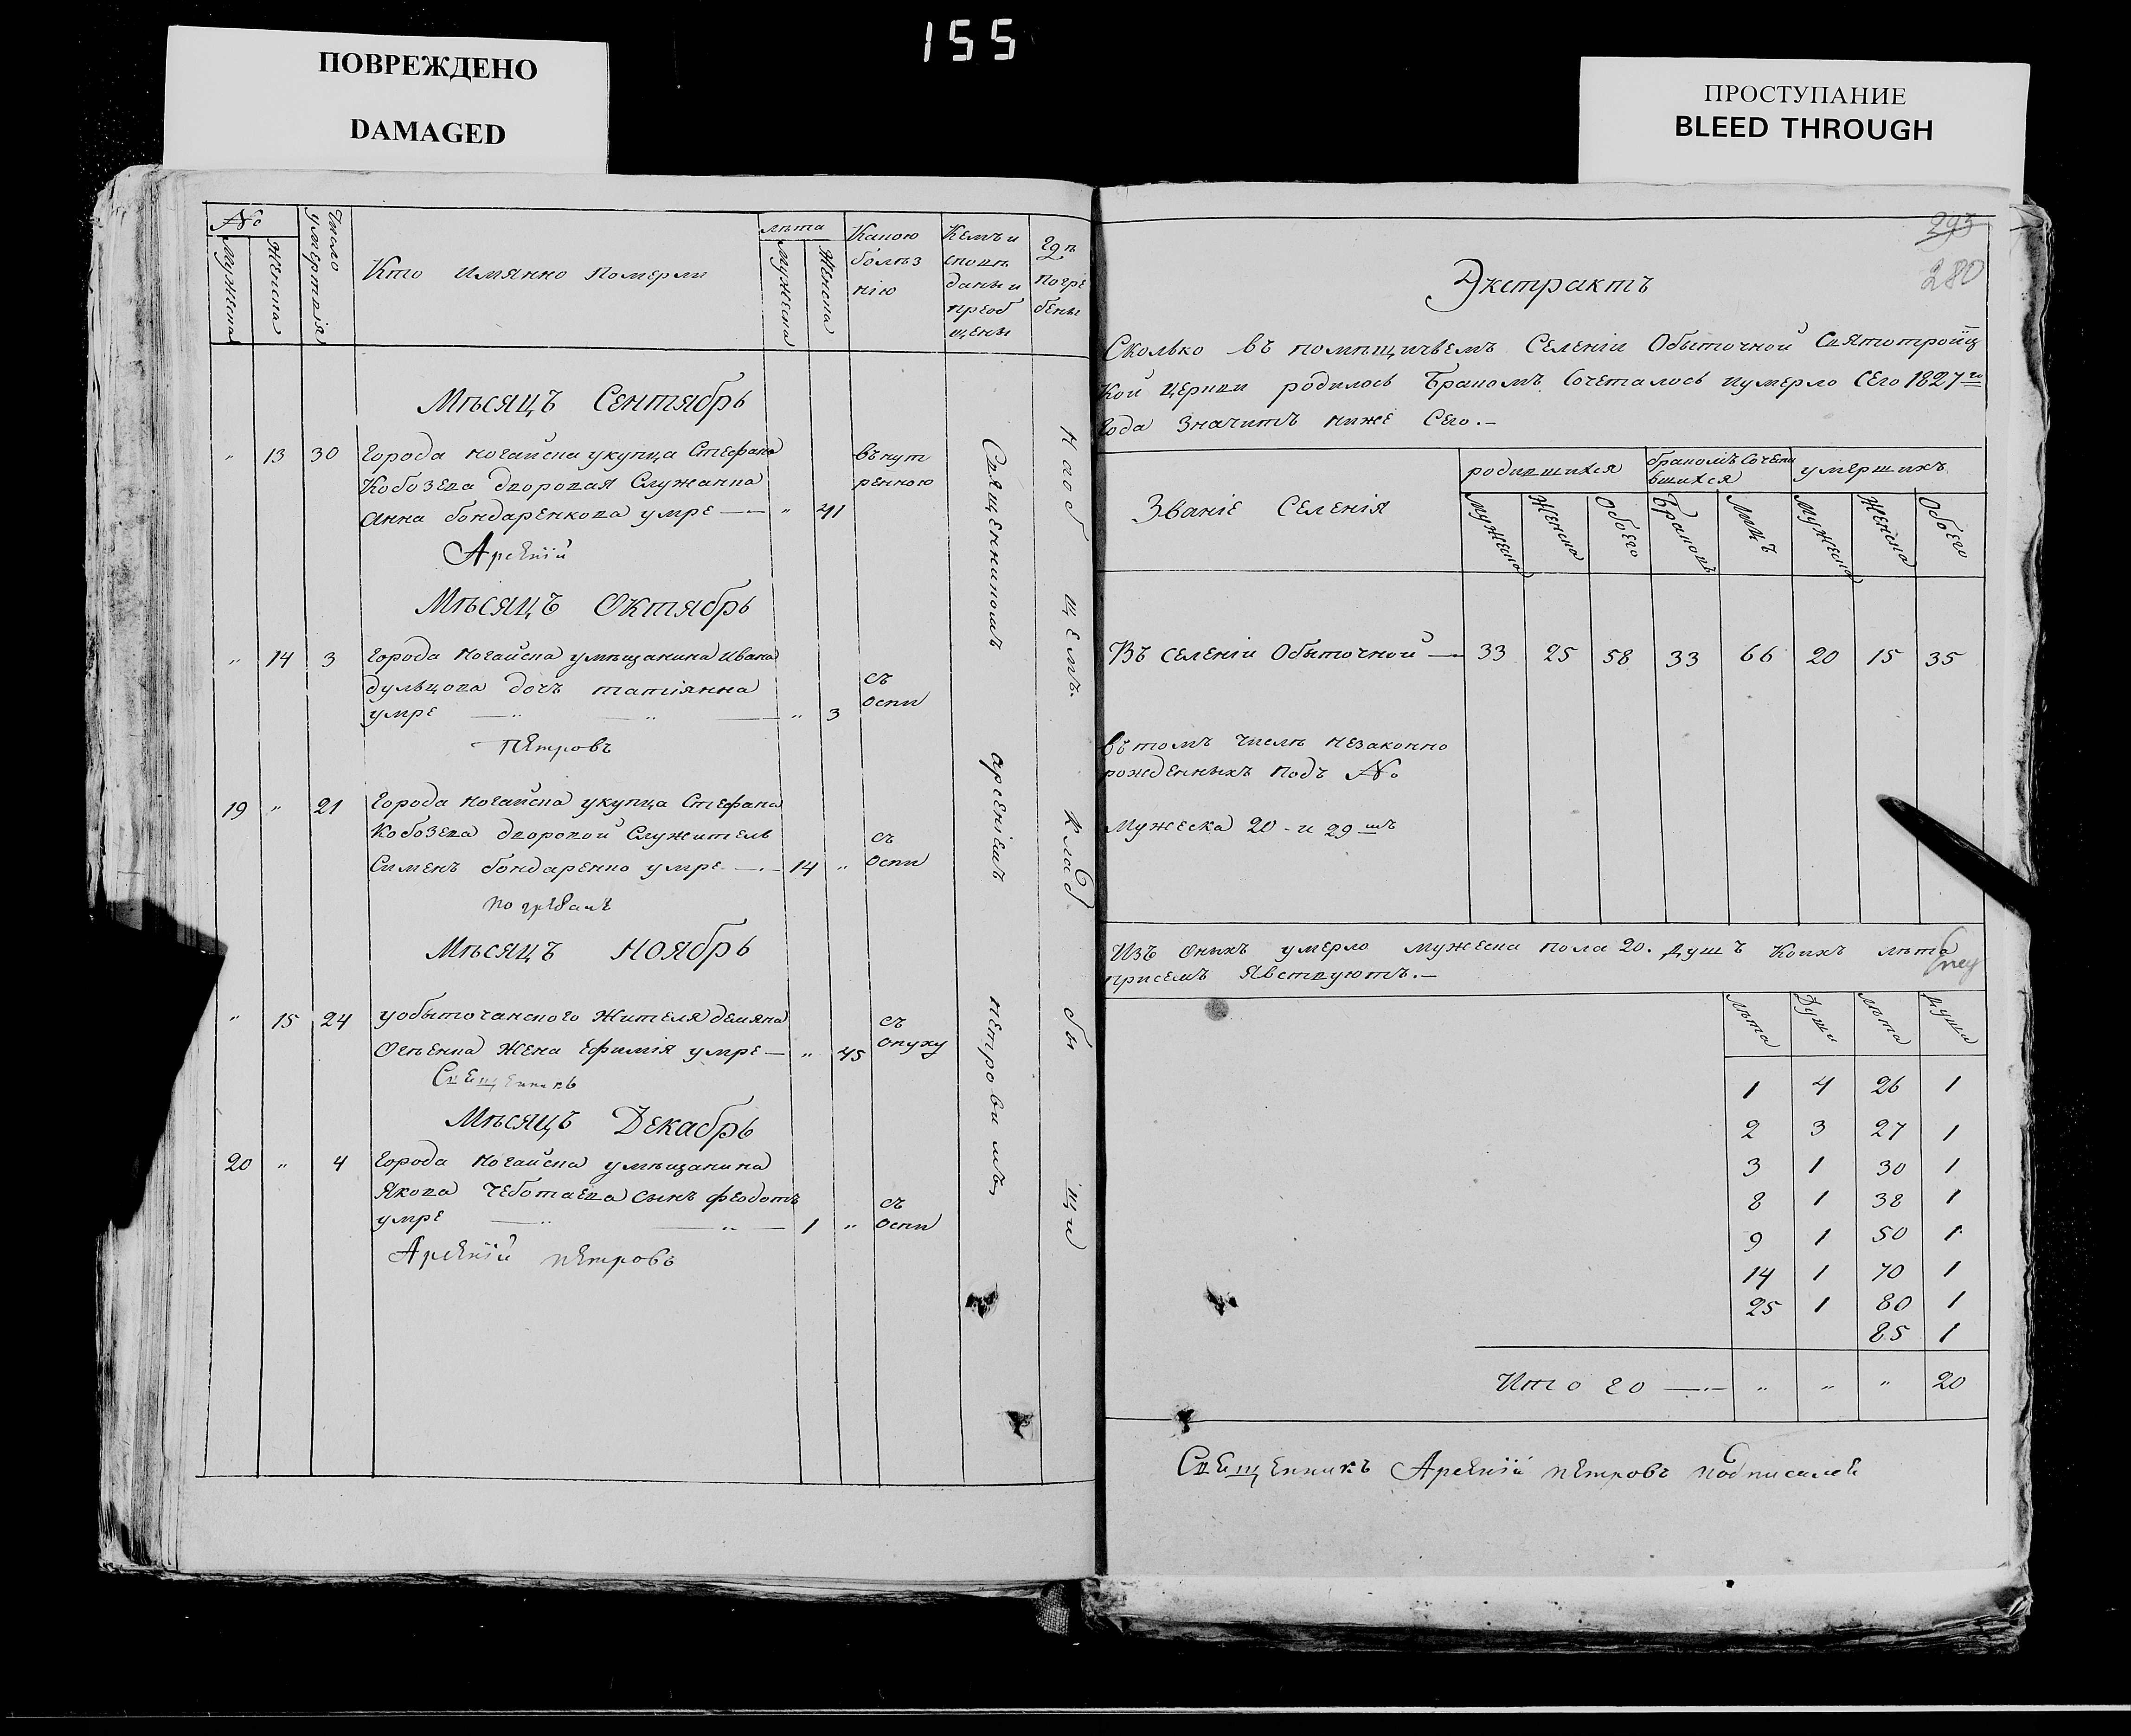 155
ПОВРЕЖДЕНО
DAMAGED
ПРОСТУПАНИЕ
BLEED THROUGH
№
Мужеска
Женска
Число умертвія
Кто имянно померли
лѣта
Мужеска
Женска
Какою болѣз нію
Кемъ и споведаны и преоб щены
Гдѣ погре бены
Мѣсяцъ Сентябрь
" 13 30 Города Ногайска укупца Стефана
Кобозева дворовая Служанка
Анна бондаренкова умре — " 41
вънут
ренною
Арсеній
Мѣсяцъ Октябрь
" 14 3 Города Ногайска умѣщанина Ивана
дульцова дочъ татіянна
умре — " — " — " 3
съ
оспи
Петровъ
19 " 21 Города Ногайска укупца Стефана
Кобозева дворовой Служитель
Сименъ бондаренко умре — 14 "
съ
оспи
погребане
Мѣсяцъ Ноябрь
" 15 24 уобыточанского Жителя демяна
жена ефимія умре — " 45
съ
опуху
Свещенникъ
Мѣсяцъ Декабрь
20 " 4 Города Ногайска умѣщанина
Якова Чеботаева сынъ феодотъ
умре — " — " — 1 "
съ
оспи
Арсеній петровъ
Священникомъ арсеніемъ петровимъ
На об щемъ клад би щи
293
280
Экстрактъ
Сколько въ помѣщичьемъ Селеніи Обыточной Святотройц
кой церкви родилось бракомъ Сочеталось иумерло Сего 1827го
года Значитъ ниже Сего.—
Званіе Селенія
родившихся
бракомъ Сочета
вшихся
умершихъ
Мужеска
Женска
Обоего
Браковъ
Лицъ
Мужеска
Женска
Обоего
Въ селеніи Обыточной — 33 25 58 33 66 20 15 35
вътомъ числѣ незаконно
рожденныхъ подъ №
Мужеска 20 - и 29 мъ
Изъ оныхъ умерло мужеска пола 20. душъ коихъ лѣта
присемъ явствуютъ.—
лѣта Душы лѣта душы
1 4 26 1
2 3 27 1
3 1 30 1
8 1 38 1
9 1 50 1
14 1 70 1
25 1 80 1
85 1
Итого — " " " 20
Свещенникъ Арсеній петровъ подписалсе